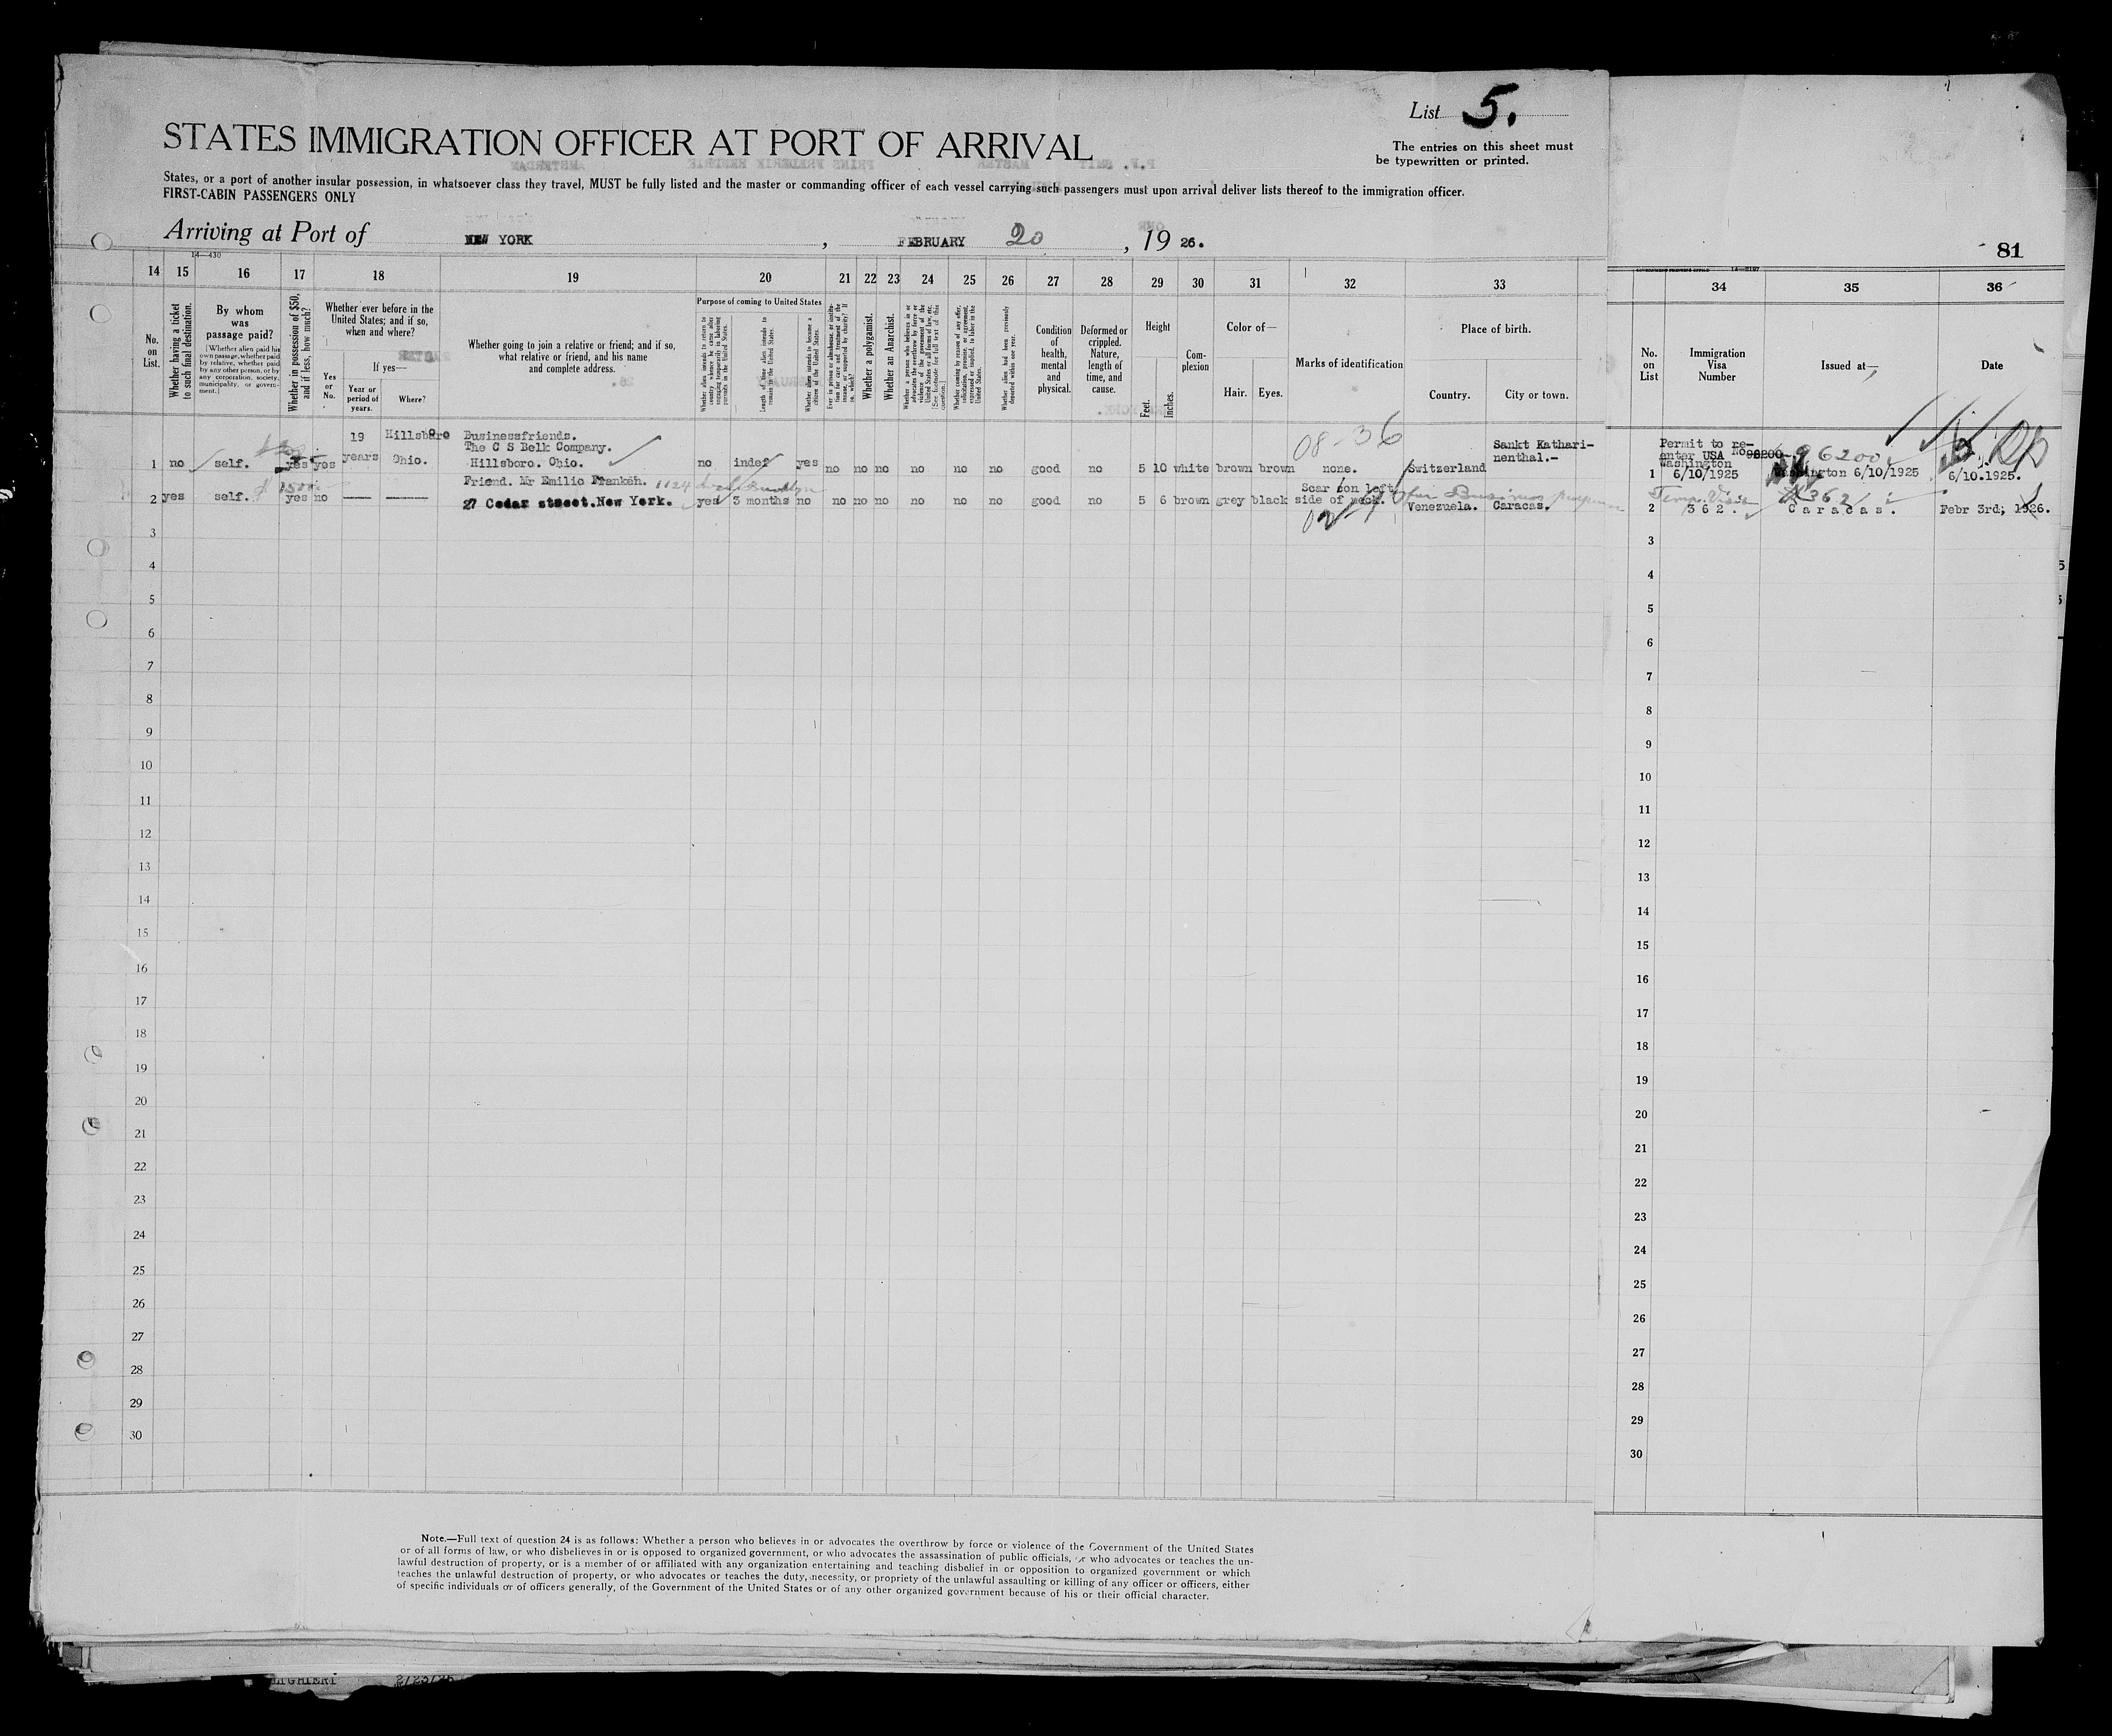 List 5.
STATES IMMIGRATION OFFICER AT PORT OF ARRIVAL
The entries on this sheet must
be typewritten or printed.
States, or a port of another insular possession, in whatsoever class they travel, MUST be fully listed and the master or commanding officer of each vessel carrying such passengers must upon arrival deliver lists thereof to the immigration officer.
FIRST-CABIN PASSENGERS ONLY
Arriving at Port of NEW YORK, FEBRUARY 20, 1926.
81
14—430
14 15 16 17 18 19 20 21 22 23 24 25 26 27 28 29 30 31 32 33 34 35 36
No. on List.
Whether having a ticket to such final destination.
By whom was passage paid?
[Whether alien paid his own passage, whether paid by relative, whether paid by any other person, or by any corporation, society, municipality, or government.]
Whether in possession of $50, and if less, how much?
Whether ever before in the United States; and if so, when and where?
Yes or No.
If yes—
Year or period of years.
Where?
Whether going to join a relative or friend; and if so, what relative or friend, and his name and complete address.
Purpose of coming to United States
Whether alien intends to return to country whence he came after engaging temporarily in laboring pursuits in the United States.
Length of time alien intends to remain in the United States.
Whether alien intends to become a citizen of the United States.
Ever in prison or almshouse, or institution for care and treatment of the insane, or supported by charity? If so, which?
Whether a polygamist.
Whether an Anarchist.
Whether a person who believes in or advocates the overthrow by force or violence of the Government of the United States or all forms of law, etc. [See footnote for full text of this question.]
Whether coming by reason of any offer, solicitation, promise, or agreement, expressed or implied, to labor in the United States.
Whether alien had been previously deported within one year.
Condition of health, mental and physical.
Deformed or crippled. Nature, length of time, and cause.
Height
Feet. Inches.
Complexion
Color of—
Hair. Eyes.
Marks of identification
Place of birth.
Country. City or town.
No. on List
Immigration Visa Number
Issued at—
Date
08-36
1 no self. yes yes 19 years Hillsboro Ohio. Businessfriends. The C S Belk Company. Hillsboro. Ohio. no indef yes no no no no no no good no 5 10 white brown brown none. Switzerland Sankt Katharinenthal.-
1 Permit to re-enter USA No 96200 Washington 6/10/1925 96200 Washington 6/10/1925 6/10.1925.
2 yes self. yes no Friend. Mr Emilio Franken. 1124 27 Cedar street. New York. yes 3 months no no no no no no no good no 5 6 brown grey black Scar on left side of neck. Venezuela. Caracas.
for Business purposes
2 Temp. Visit 362. 362 Caracas. Febr 3rd, 1926.
3 3
4 4
5 5
6 6
7 7
8 8
9 9
10 10
11 11
12 12
13 13
14 14
15 15
16 16
17 17
18 18
19 19
20 20
21 21
22 22
23 23
24 24
25 25
26 26
27 27
28 28
29 29
30 30
Note.—Full text of question 24 is as follows: Whether a person who believes in or advocates the overthrow by force or violence of the Government of the United States
or of all forms of law, or who disbelieves in or is opposed to organized government, or who advocates the assassination of public officials, or who advocates or teaches the un-
lawful destruction of property, or is a member of or affiliated with any organization entertaining and teaching disbelief in or opposition to organized government or which
teaches the unlawful destruction of property, or who advocates or teaches the duty, necessity, or propriety of the unlawful assaulting or killing of any officer or officers, either
of specific individuals or of officers generally, of the Government of the United States or of any other organized government because of his or their official character.